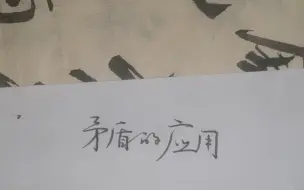 矛盾的应用